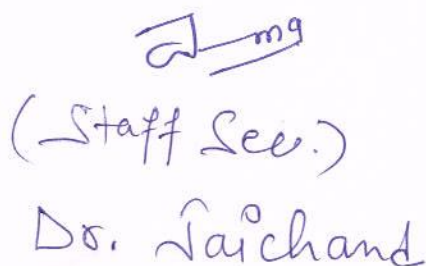 (Staff Sec.)
Dr. Jaichand